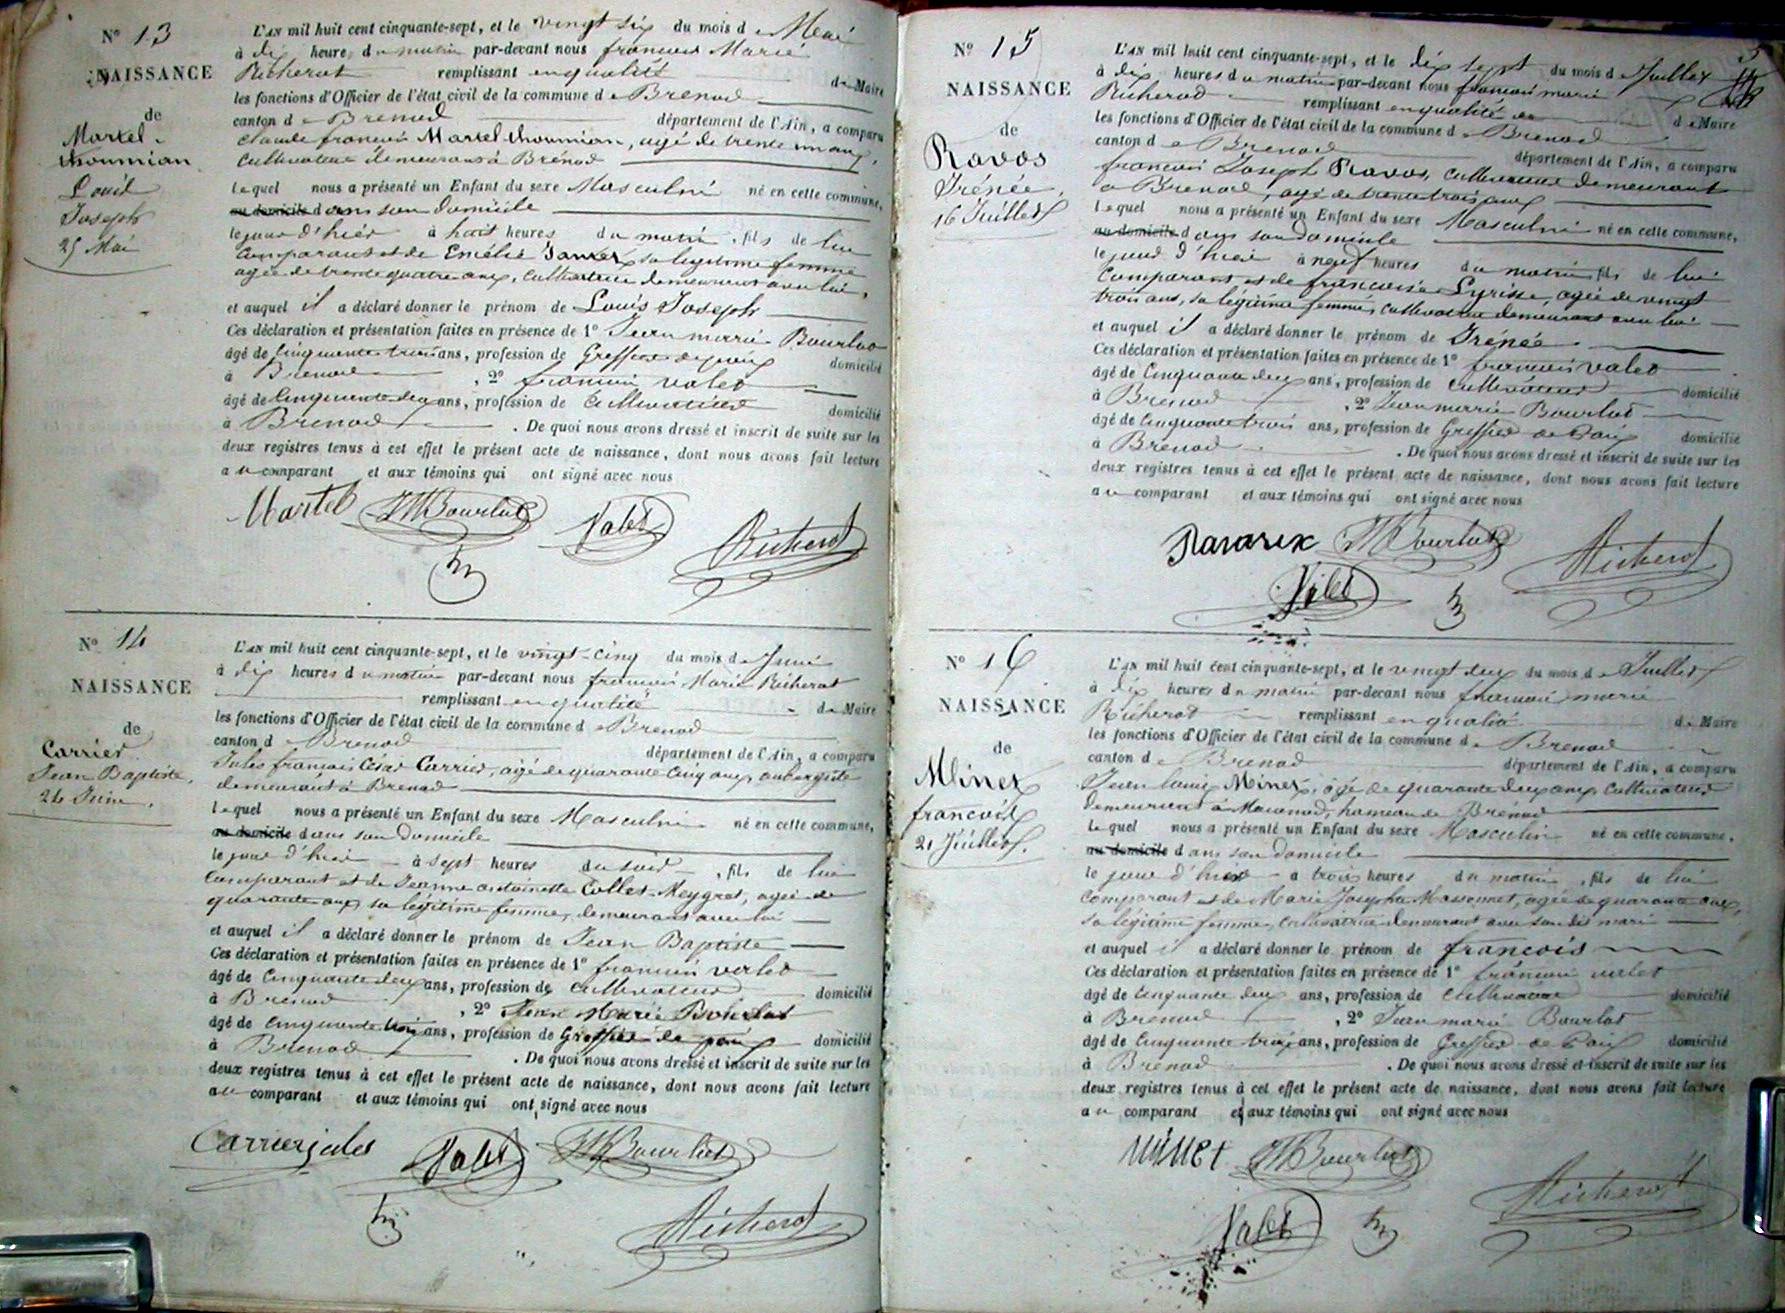 N° 13
NAISSANCE
de
Martel-
thoumian
Louis
Joseph
25 Mai
L'AN mil huit cent cinquante-sept, et le vingt six du mois de Mai
à dix heures du matin par-devant nous francois Marie
Richerot remplissant en qualité de Maire
les fonctions d'Officier de l'état civil de la commune de Brenod
canton de Brenod département de l'Ain, a comparu
Claude francois Martel thoumian, agé de trente un ans,
cultivateur demeurant à Brénod
lequel nous a présenté un Enfant du sexe Masculin né en cette commune,
au domicile dans son domicile
le jour d'hier à huit heures du matin, fils de lui
comparant et de Emélie sa legitime femme
agée de trente quatre ans, cultivatrice demeurant avec lui,
et auquel il a déclaré donner le prénom de Louis Joseph
Ces déclaration et présentation faites en présence de 1° Jean marie Bourlot
âgé de Cinquante trois ans, profession de Greffier de paix domicilié
à Brenod, 2° francois valet
âgé de Cinquante deux ans, profession de Cultivateur domicilié
à Brenod. De quoi nous avons dressé et inscrit de suite sur les
deux registres tenus à cet effet le présent acte de naissance, dont nous avons fait lecture
au comparant et aux témoins qui ont signé avec nous
Martel JMBourlot Valet Richerot
N° 14
NAISSANCE
de
Carrier
Jean Baptiste,
24 Juin.
L'AN mil huit cent cinquante-sept, et le vingt-cinq du mois de Juin
à dix heures du matin par-devant nous francois Marie Richerot
remplissant en qualité de Maire
les fonctions d'Officier de l'état civil de la commune de Brenod
canton de Brenod département de l'Ain, a comparu
Jules francois César Carrier, agé de quarante cinq ans, aubergiste
demeurant à Brenod
lequel nous a présenté un Enfant du sexe Masculin né en cette commune,
au domicile dans son domicile
le jour d'hier à sept heures du soir, fils de lui
comparant et de Jeanne antoinette Collet-Meygret, agée de
quarante ans sa légitime femme, demeurant avec lui
et auquel il a déclaré donner le prénom de Jean Baptiste
Ces déclaration et présentation faites en présence de 1° francois valet
âgé de Cinquante deux ans, profession de cultivateur domicilié
à Brenod, 2° Jean Marie Bourlot
âgé de cinquante trois ans, profession de Greffier de paix domicilié
à Brenod. De quoi nous avons dressé et inscrit de suite sur les
deux registres tenus à cet effet le présent acte de naissance, dont nous avons fait lecture
au comparant et aux témoins qui ont signé avec nous
Carrier jules Valet JMBourlot
Richerot
N° 15
NAISSANCE
de
Ravos
Irénée,
16 Juillet
L'AN mil huit cent cinquante-sept, et le dix sept du mois de Juillet
à dix heures du matin par-devant nous francois marie
Richerot remplissant en qualité de Maire
les fonctions d'Officier de l'état civil de la commune de Brenod
canton de Brenod département de l'Ain, a comparu
francois Joseph Ravos, cultivateur demeurant
a Brenod, agé de trente trois ans
lequel nous a présenté un Enfant du sexe Masculin né en cette commune,
au domicile dans son domicile
le jour d'hier à neuf heures du matin, fils de lui
comparant et de francoise Lyrisse, agée de vingt
trois ans, sa légitime femme, cultivatrice demeurant avec lui
et auquel il a déclaré donner le prénom de Irénée
Ces déclaration et présentation faites en présence de 1° francois valet
âgé de Cinquante deux ans, profession de cultivateur domicilié
à Brenod, 2° Jean marie Bourlot
âgé de cinquante trois ans, profession de Greffier de Paix domicilié
à Brenod. De quoi nous avons dressé et inscrit de suite sur les
deux registres tenus à cet effet le présent acte de naissance, dont nous avons fait lecture
au comparant et aux témoins qui ont signé avec nous
JMBourlot Richerot
Valet
N° 16
NAISSANCE
de
Minet
francois
21 Juillet.
L'AN mil huit cent cinquante-sept, et le vingt deux du mois de Juillet
à dix heures du matin par-devant nous francois marie
Richerot remplissant en qualité de Maire
les fonctions d'Officier de l'état civil de la commune de Brenod
canton de Brenod département de l'Ain, a comparu
Jean louis Minet, agé de quarante deux ans, cultivateur
demeurant à hameau de Brénod
lequel nous a présenté un Enfant du sexe Masculin né en cette commune,
au domicile dans son domicile
le jour d'hier à trois heures du matin, fils de lui
comparant et de Marie Josephte Massonnet, agée de quarante ans,
sa légitime femme, cultivatrice demeurant avec son dit mari
et auquel il a déclaré donner le prénom de francois
Ces déclaration et présentation faites en présence de 1° francois valet
âgé de Cinquante deux ans, profession de cultivateur domicilié
à Brenod, 2° Jean marie Bourlot
âgé de Cinquante trois ans, profession de Greffier de Paix domicilié
à Brenod. De quoi nous avons dressé et inscrit de suite sur les
deux registres tenus à cet effet le présent acte de naissance, dont nous avons fait lecture
au comparant et aux témoins qui ont signé avec nous
Minet JMBourlot
Valet Richerot